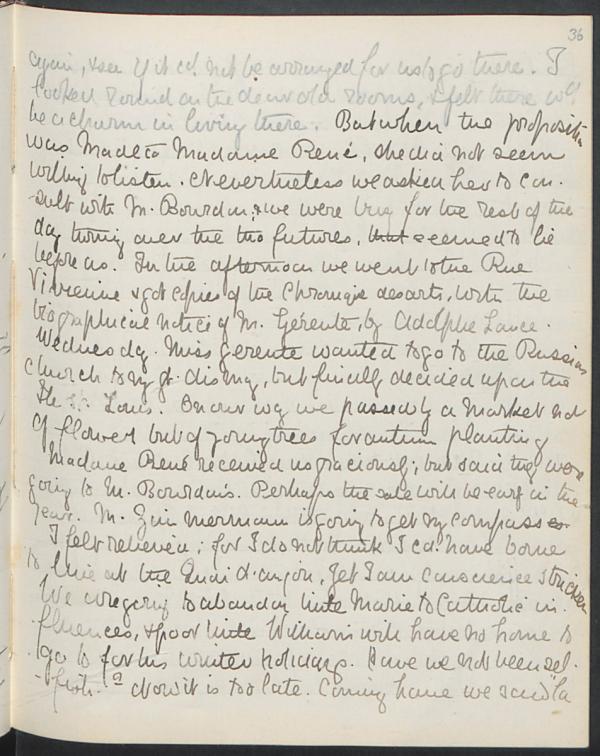 36
again, & see if it cd. not be arranged for us to go there. I
looked round on the dear old rooms, & felt there wd.
be a charm in living there. But when the proposition
was made to Madame René, she did not seem
willing to listen. Nevertheless we asked her to con-
-sult with M. Bourdon; & we were busy for the rest of the
day turning over the two futures, that seemed to lie
before us. In the afternoon we went to the Rue
Vivienne & got copies of the Chronique des arts, with the
biographical notice of M. Gérente, by Adolphe Lance.
Wednesday. Miss Gerente wanted to go to the Russian
Church to my gt. dismay, but finally decided upon the
Ile St. Louis. On our way we passed by a market not
of flowers but of young trees for autumn planting
Madame René received us graciously; but said they were
going to M. Bourdon's. Perhaps the sale will be early in the
year. M. Zimmermann is going to get my compasses.
I felt relieved; for I do not think I cd. have borne
to live at the Quai d'anjou, yet I am conscience stricken
We are going to abandon little Marie to Catholic in-
fluences, & poor little William will have no home to
go to for his winter holidays. Have we not been sel-
-fish? Now it is too late. Coming home we saw "la